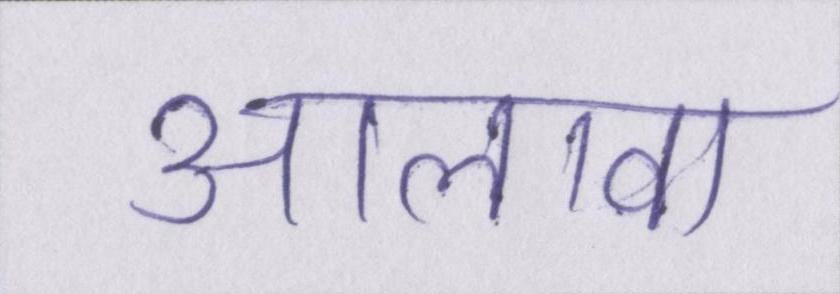 आलावा